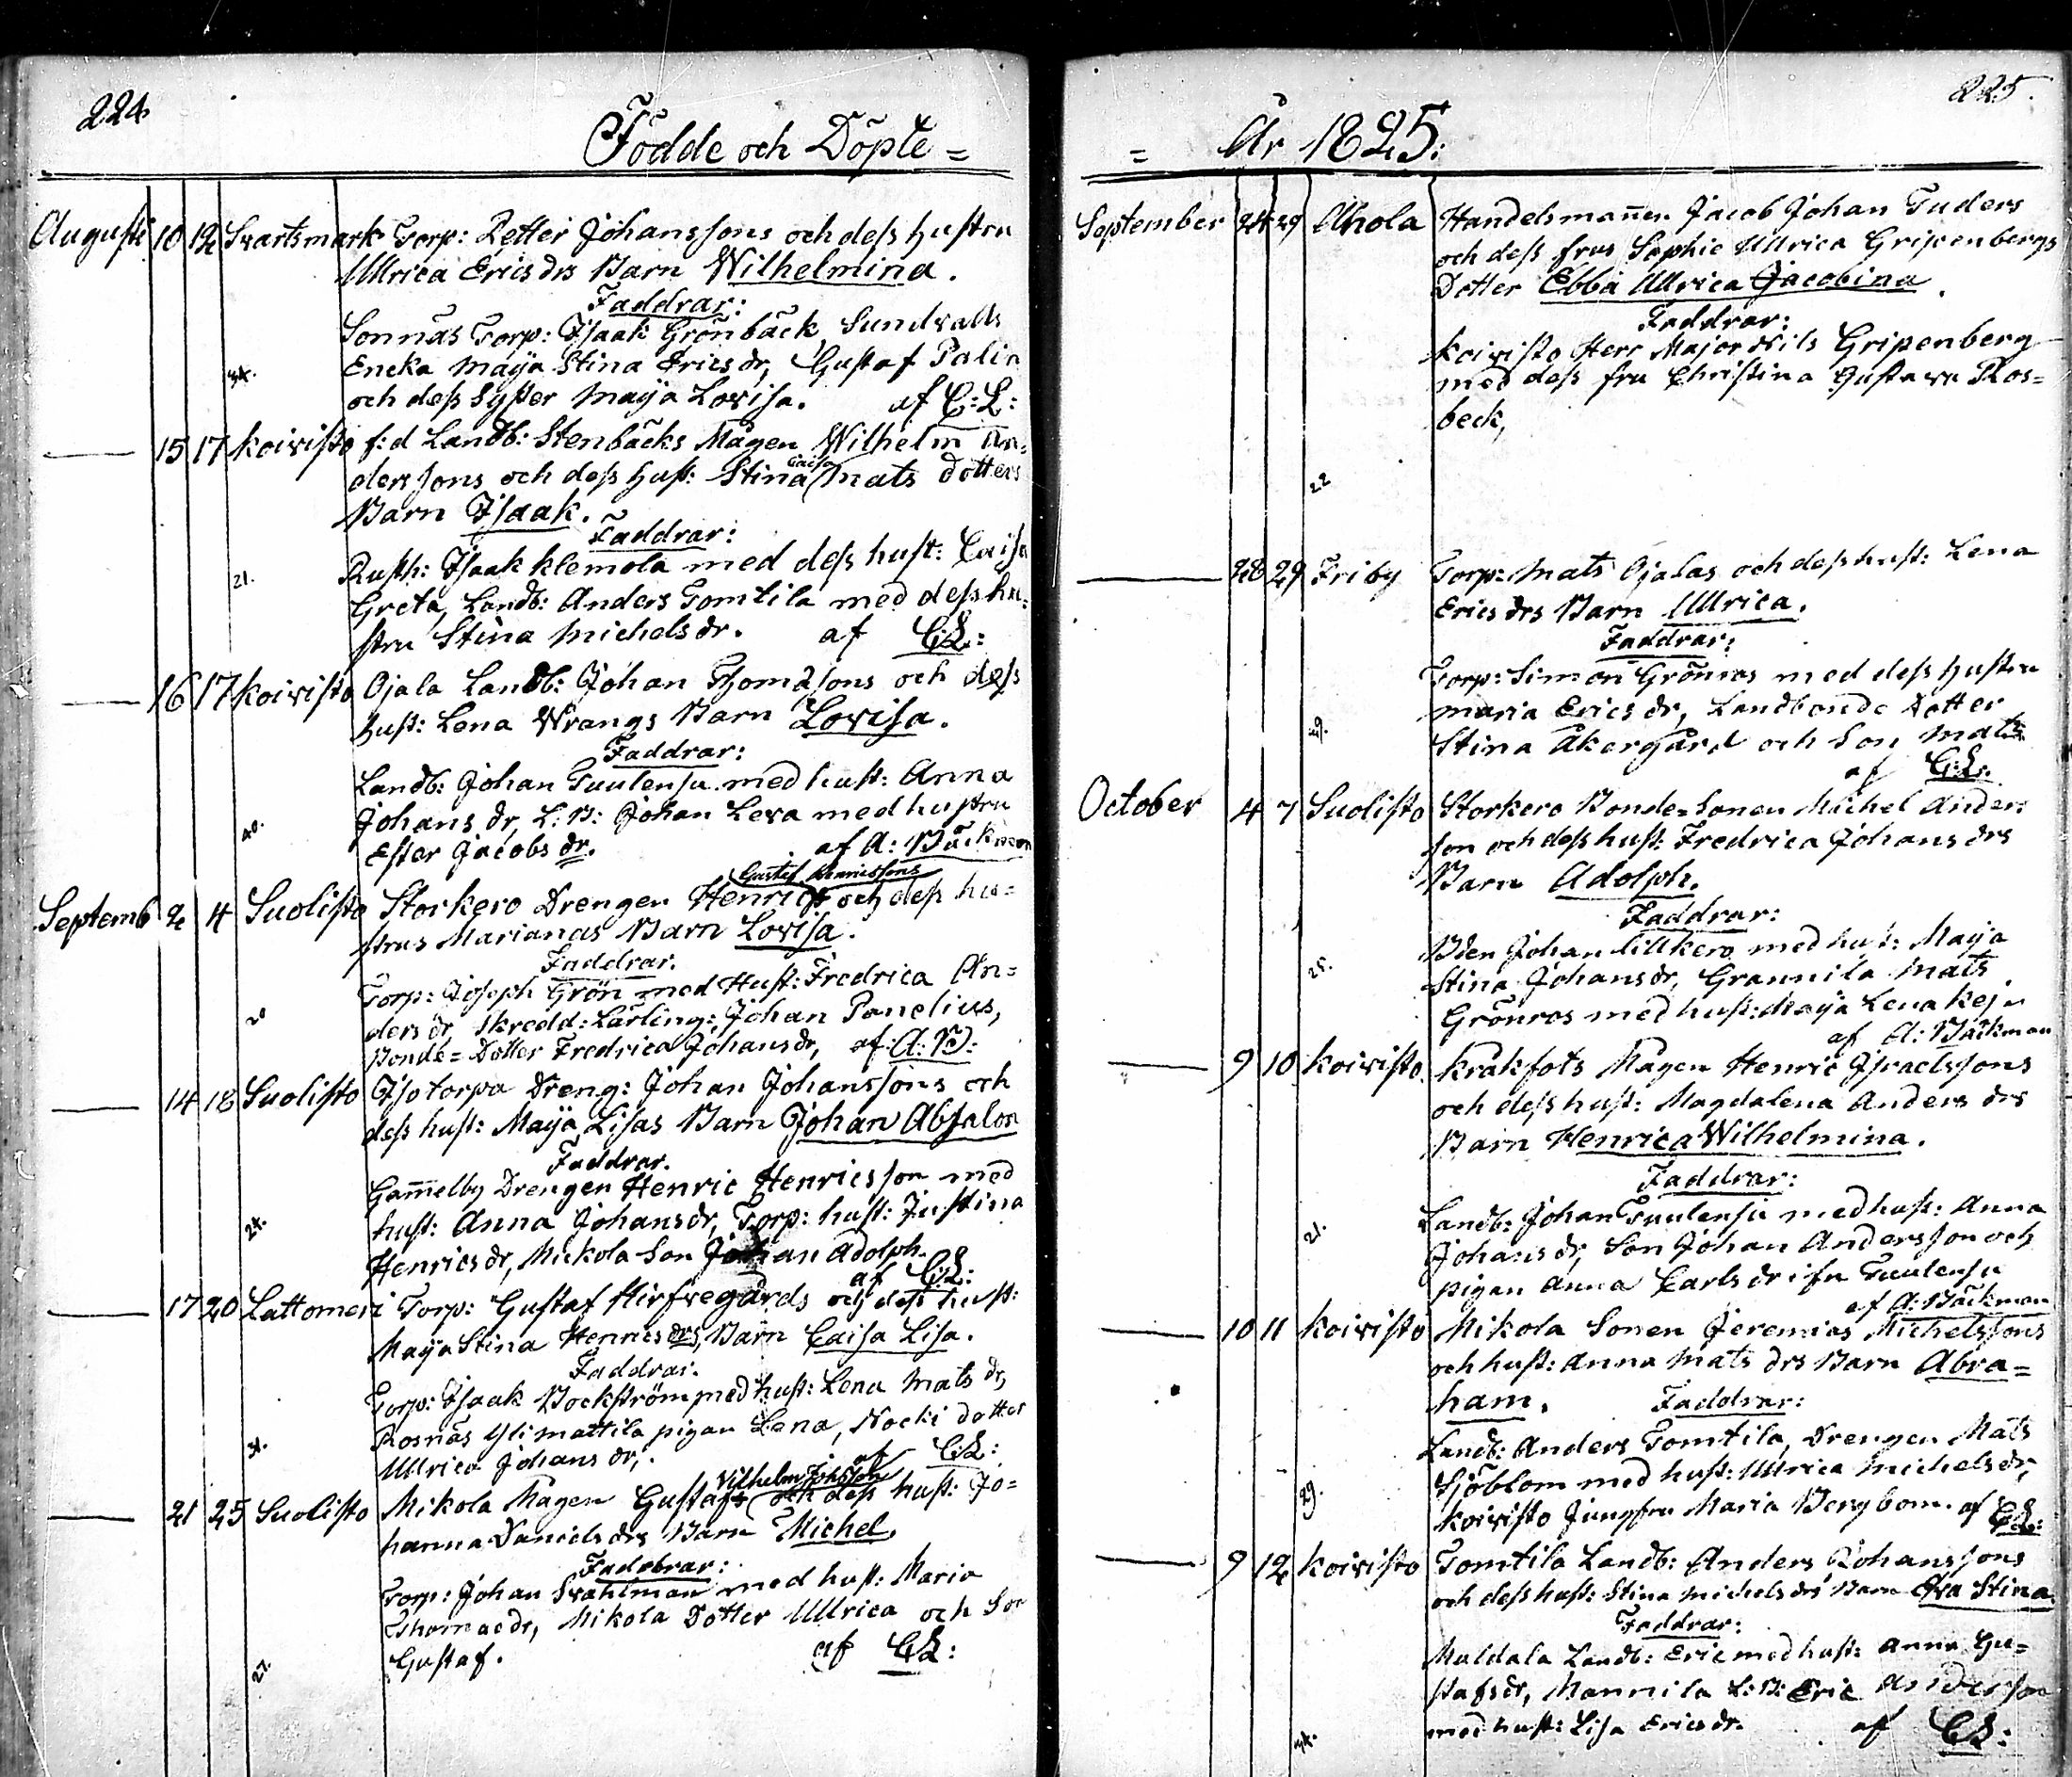 224
Födde och Döpte =
Augusti 10 12 Svartsmark Torp: Petter Johanssons och dess hustru
Ullrica Ericsdrs Barn Wilhelmina.
Faddrar:
Sonnäs Torp: Isaak Grönbäck, Sundvalls
Encka Maija Stina Ericsdr, Gustaf Palin
34.
och dess Syster Maija Lovisa. af C:L:
15 17 Koivisto f:d Landb: Stenbäcks Mågen Wilhelm An=
derssons och dess hust: Stina Caisa Mats dotters
Barn Isaak.
Faddrar:
Rusth: Isaak Klemola med dess hust: Caisa
21.
Greta, Landb: Anders Tomtila med dess hu=
stru Stina Michelsdr. af C:L:
16 17 Koivisto Ojala Landb: Johan Thomassons och dess
hust: Lena Wrangs Barn Lovisa.
Faddrar:
Landb: Johan Tuulensu med hust: Anna
Johansdr, L:B: Johan Leva med hustru
40.
Ester Jacobsdr. af A: Bäckman
Gustaf Henricssons
Septemb 2 4 Suolisto Storkero Drengen Henrics och dess hu=
strus Marianas Barn Lovisa.
Faddrar.
Torp: Joseph Grön med Hust: Fredrica An=
20
dersdr, Skredd: Lärling: Johan Panelius,
Bonde=Dotter Fredrica Johansdr, af: A: B:
14 18 Suolisto Isotorpa Dreng: Johan Johanssons och
dess hust: Maija Lisas Barn Johan Absalon
Faddrar.
Gammelby Drengen Henric Henricsson med
24.
hust: Anna Johansdr, Torp: hust: Justina
Henricsdr, Mickola Son Johan Adolph.
af C:L:
17 20 Lattomeri Torp: Gustaf Hirfvegårds och dess hust:
Maija Stina Henricsdrs, Barn Caisa Lisa.
Faddrar.
Torp: Isaak Bockström med hust: Lena Matsdr,
Rosnäs Ylimattila pigan Lena, Nocki dotter
31.
Ullrica Johansdr,. af C:L:
Vilhelm Johsson
21 25 Suolisto Mikola Mågen Gustafs och dess hust: Jo=
hanna Danielsdrs Barn Michel,
Faddrar:
Torp: Johan Svahlman med hust: Maria
Thomaedr, Mikola Dotter Ullrica och Son
27.
Gustaf. af C:L:
225.
= År 1825:
September 24 29 Ahola Handelsmannen Jacob Johan Tuders
och dess frus Sophie Ullrica Gripenbergs
Dotter Ebba Ullrica Jacobina.
Faddrar:
Koivisto Herr Major Nils Gripenberg
med dess fru Christina Gustava Ros=
beck,
22
28 29 Friby Torp: Mats Ojalas och dess hust: Lena
Ericsdrs Barn Ullrica.
Faddrar:
Torp: Simon Grönros med dess hustru
Maria Ericsdr, Landbonde Dotter
Stina Åkergård och Son Mats
af C:L:
October 4 7 Suolisto Storkero Bonde=Sonen Michel Anders
son och dess hust: Fredrica Johansdrs
Barn Adolph.
Faddrar:
Bden Johan Lillkero med hust: Maija
25.
Stina Johansdr, Grannila Mats
Grönros med hust: Maija Lena Keju
af A: Bäckman
9 10 Koivisto. Kråkfots Mågen Henric Israelssons
och dess hust: Magdalena Andersdrs
Barn Henrica Wilhelmina.
Faddrar:
Landb: Johan Tuulensu med hust: Anna
21.
Johansdr, Son Johan Andersson och
pigan Anna Carlsdr ifrn Tuulensu
af A: Bäckman
10 11 Koivisto Mikola Sonen Jeremias Michelssons
och hust: Anna Matsdrs Barn Abra=
ham. Faddrar:
Landb: Anders Tomtila, Drengen Mats
29.
Sjöblom med hust: Ullrica Michelsdr,
Koivisto Jungfru Maria Bergbom. af C:L:
9 12 Koivisto Tomtila Landb: Anders Johanssons
och dess hust: Stina Michelsdrs Barn Eva Stina.
Faddrar:
Muldala Landb: Eric med hust: Anna Gu=
stafsdr, Mannila L:B: Eric Andersson
34.
med hust: Lisa Ericsdr. af C:L: